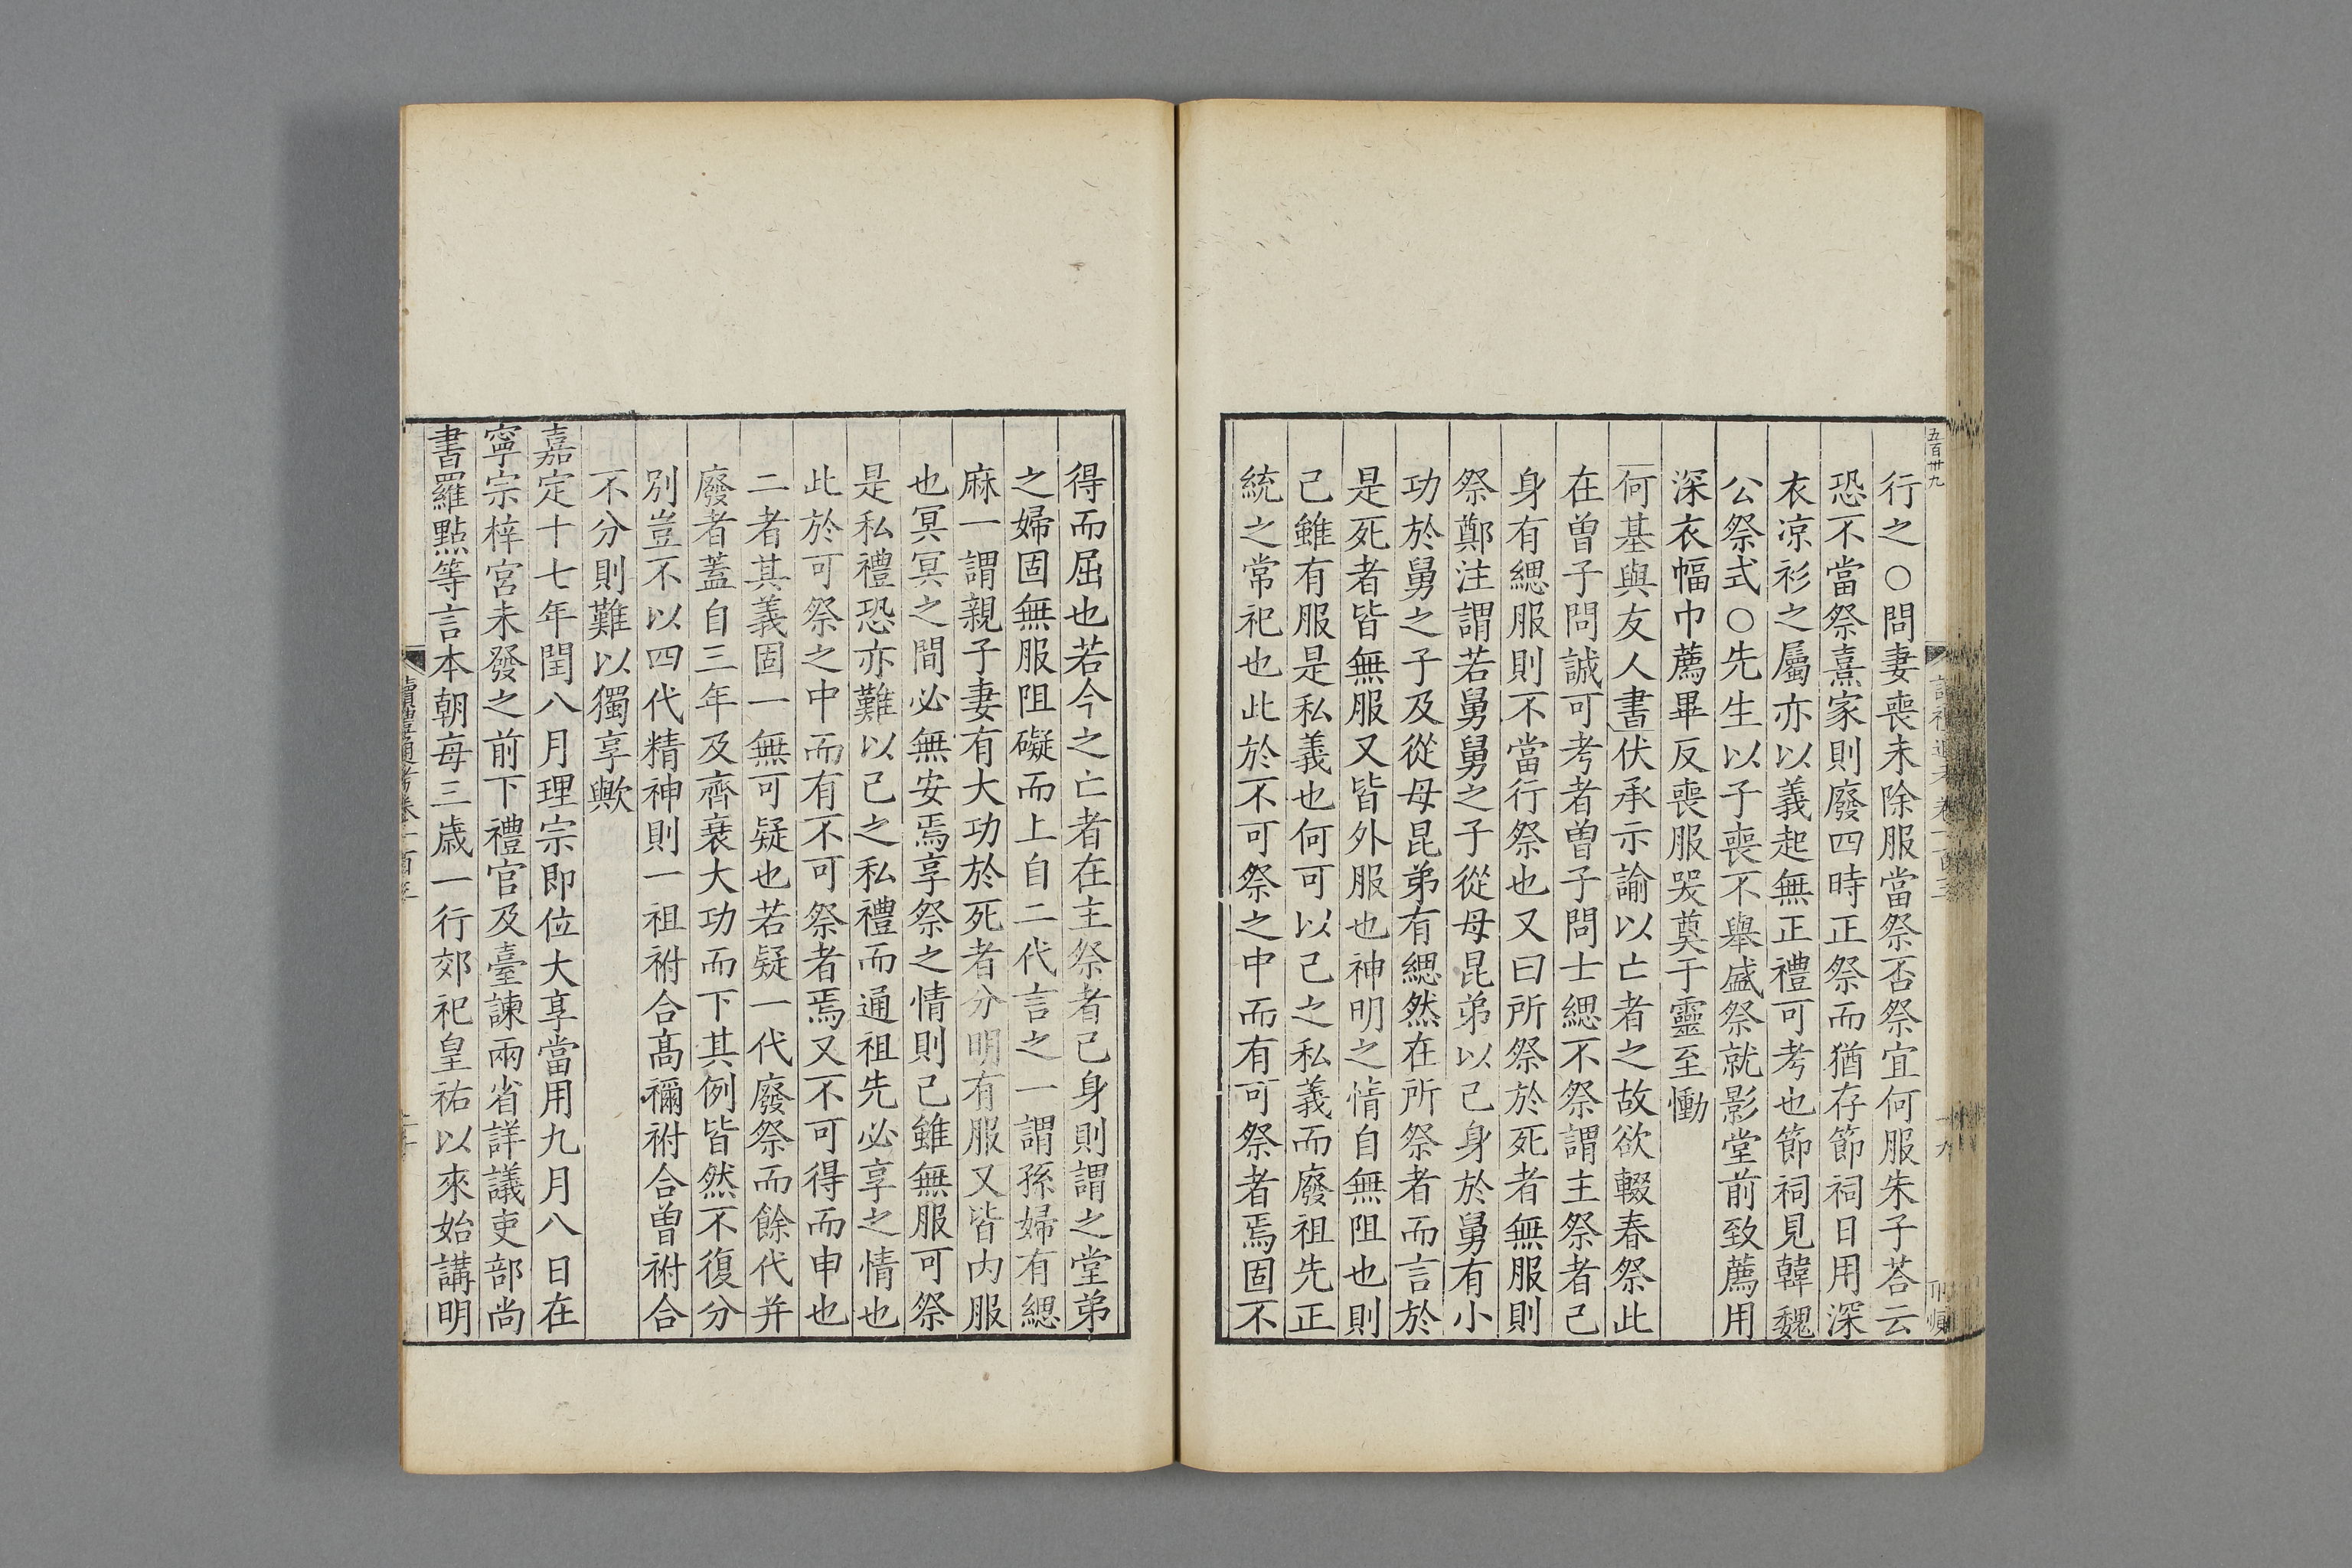 五百卅九
行之○問妻喪未除服當祭否祭宜何服朱子荅云
恐不當祭熹家則廢四時正祭而猶存節祠日用深
衣凉衫之屬亦以義起無正禮可考也節祠見韓魏
公祭式○先生以子喪不舉盛祭就影堂前致薦用
深衣幅巾薦畢反喪服哭奠于靈至慟
何基與友人書伏承示諭以亡者之故欲輟春祭此
在曾子問誠可考者曾子問士緦不祭謂主祭者己
身有緦服則不當行祭也又曰所祭於死者無服則
祭鄭注謂若舅舅之子從母昆弟以己身於舅有小
功於舅之子及從母昆弟有緦然在所祭者而言於
是死者皆無服又皆外服也神明之情自無阻也則
己雖有服是私義也何可以己之私義而廢祖先正
統之常祀也此於不可祭之中而有可祭者焉固不
得而屈也若今之亡者在主祭者己身則謂之堂弟
之婦固無服阻礙而上自二代言之一謂孫婦有緦
麻一謂親子妻有大功於死者分明有服又皆內服
也冥冥之間必無安焉享祭之情則己雖無服可祭
是私禮恐亦難以己之私禮而通祖先必享之情也
此於可祭之中而有不可祭者焉又不可得而申也
二者其義固一無可疑也若疑一代廢祭而餘代并
廢者蓋自三年及齊衰大功而下其例皆然不復分
別豈不以四代精神則一祖祔合高禰祔合曾祔合
不分則難以獨享歟
嘉定十七年閏八月理宗即位大享當用九月八日在
寧宗梓宮未發之前下禮官及臺諫兩省詳議吏部尚
書羅點等言本朝每三歲一行郊祀皇祐以來始講明
讀禮通考卷一百三